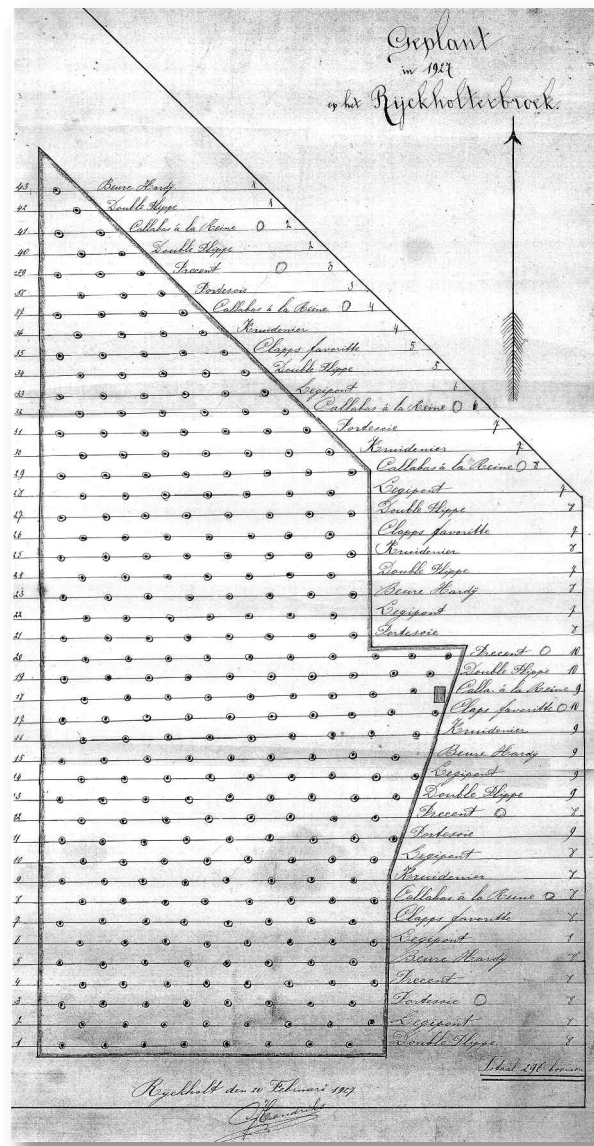 Geplant
in 1927
op het Rijckholterbroek.
43 Beure Hardy 1
42 Double Flippe 1
41 Callabas à la Reine 2
40 Double Flippe 2
39 Precent 3
38 Fortesoie 3
37 Callabas à la Reine 4
36 Kruidenier 4
35 Clapps favoritte 5
34 Double Flippe 5
33 Legipont 6
32 Callabas à la Reine 6
31 Fortesoie 7
30 Kruidenier 7
29 Callabas à la Reine 8
28 Legipont 7
27 Double Flippe 8
26 Clapps favoritte 7
25 Kruidenier 8
24 Double Flippe 7
23 Beure Hardy 8
22 Legipont 7
21 Fortesoie 8
20 Precent 10
19 Double Flippe 10
18 Calla. à la Reine 9
17 Claps favoritte 10
16 Kruidenier 9
15 Beure Hardy 9
14 Legipont 9
13 Double Flippe 9
12 Precent 8
11 Fortesoie 9
10 Legipont 8
9 Kruidenier 8
8 Callabas à la Reine 8
7 Clapps favoritte 8
6 Legipont 8
5 Beure Hardy 8
4 Precent 8
3 Fortesoie 8
2 Legipont 8
1 Double Flippe 8
Totaal 296 boomen
Ryckholt den Februari 1927
Hendriks